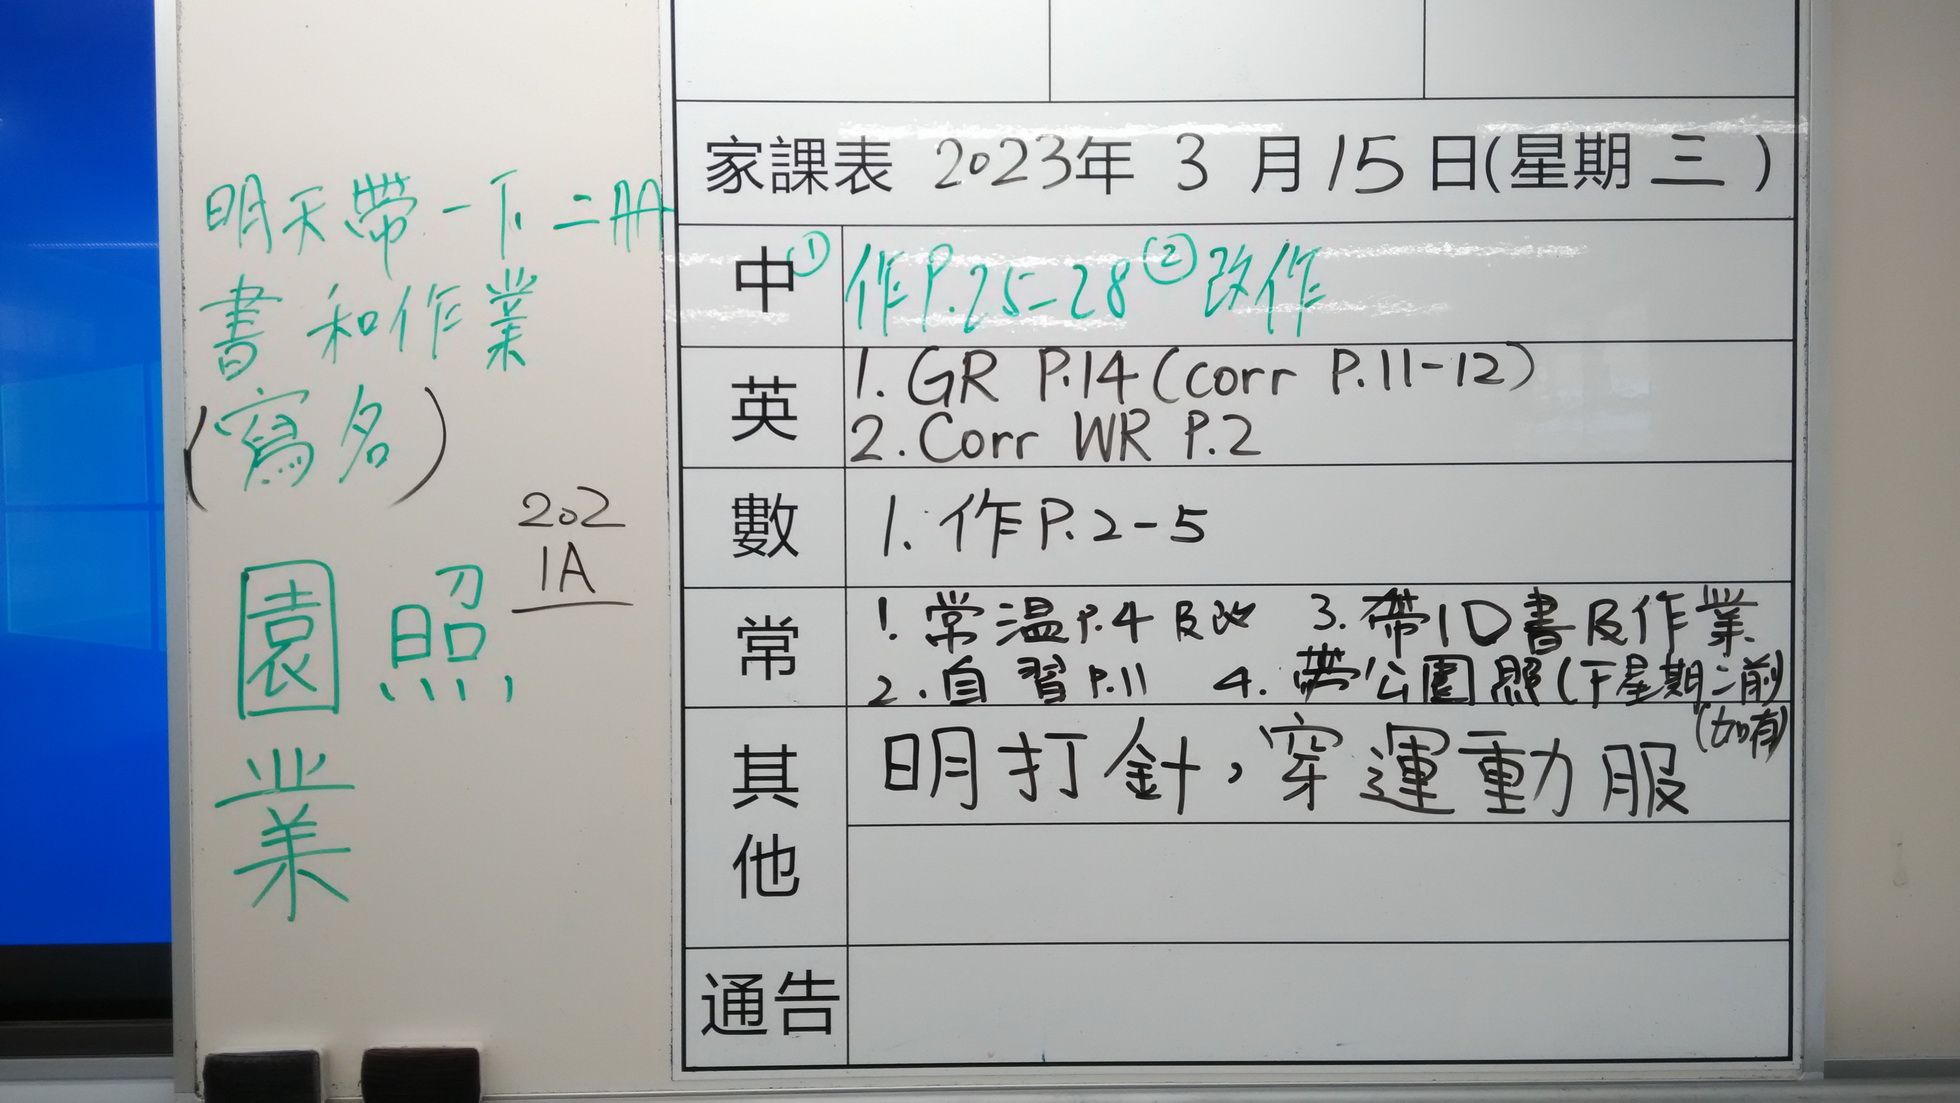 明天帶一下二冊
書和作業
(寫名)
202
1A
園照
業
家課表 2023年 3 月 15 日(星期 三 )
中 ① 作P.25-28 ② 改作
英 1. GR P.14 (corr P.11-12)
2. Corr WR P.2
數 1. 作P.2-5
常 1. 常溫P.4及改 3. 帶1D書及作業
2. 自習P.11 4. 帶公園照(下星期二前)
(如有)
其他 明打針，穿運動服
通告